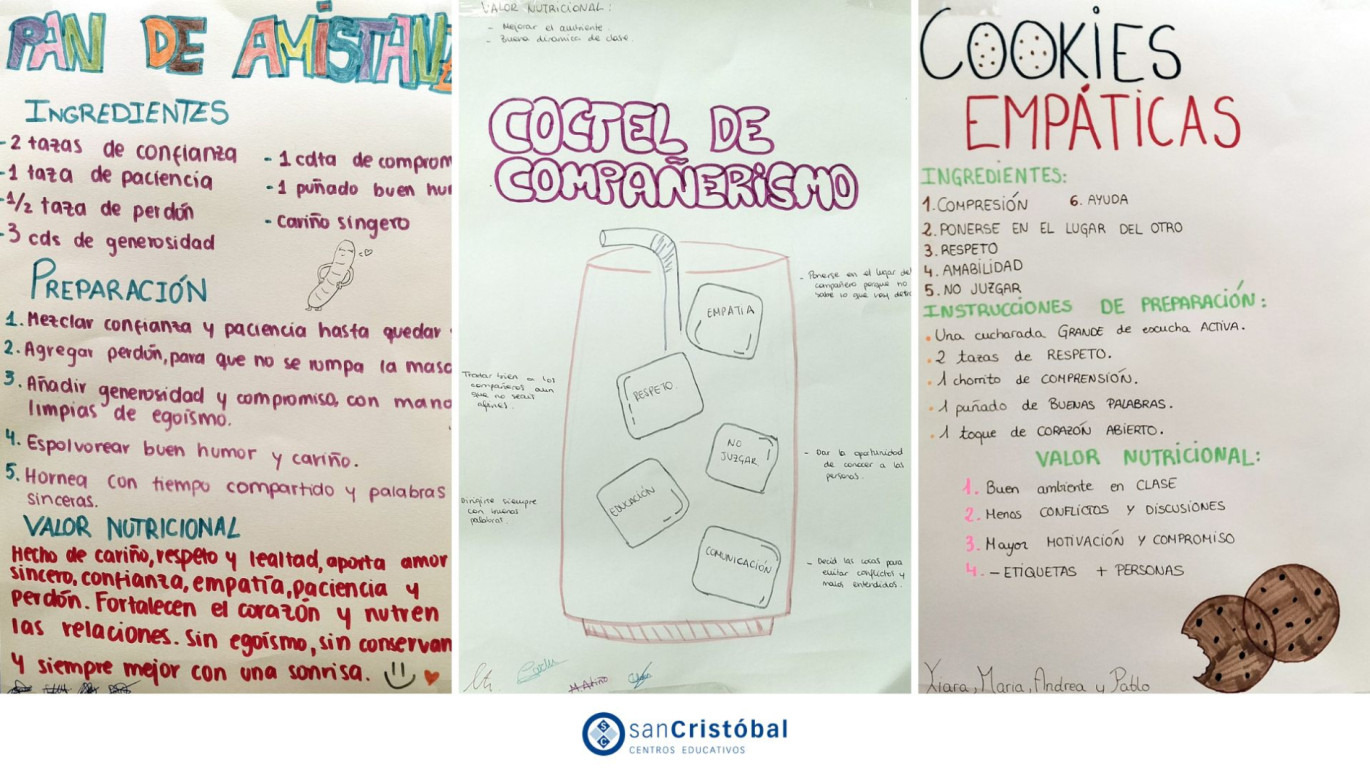 PAN DE AMISTAD
INGREDIENTES
-2 tazas de confianza
-1 taza de paciencia
-1/2 taza de perdón
-3 cds de generosidad
-1 cdta de comprom
-1 puñado buen hu
-cariño singero
PREPARACIÓN
1. Mezclar confianza y paciencia hasta quedar
2. Agregar perdón, para que no se rompa la masa
3. Añadir generosidad y compromiso, con mano
limpias de egoismo.
4. Espolvorear buen humor y cariño.
5. Hornea con tiempo compartido y palabras
sinceras.
VALOR NUTRICIONAL
Hecho de cariño, respeto y lealtad, aporta amor
sincero, confianza, empatía, paciencia y
perdón. Fortalecen el corazón y nutren
las relaciones. Sin egoísmo, sin conservan
y siempre mejor con una sonrisa.
VALOR NUTRICIONAL:
- Mejorar el ambiente.
- Buena dinamica de clase.
COCTEL DE
COMPAÑERISMO
EMPATIA
- Ponerse en el lugar del
compañero porque no
sabe lo que
RESPETO.
Tratar bien a los
compañeros aun
que no seais
NO
JUZGAR
- Dar la oportunidad
de conocer a las
personas.
EDUCACIÓN
Dirigirse siempre
con buenas
palabras.
COMUNICACIÓN
- Decid las cosas para
evitar conflictos y
malos entendidos.
COOKIES
EMPÁTICAS
INGREDIENTES:
1. COMPRESIÓN 6. AYUDA
2. PONERSE EN EL LUGAR DEL OTRO
3. RESPETO
4. AMABILIDAD
5. NO JUZGAR
INSTRUCCIONES DE PREPARACIÓN:
• Una cucharada GRANDE de escucha ACTIVA.
• 2 tazas de RESPETO.
• 1 chorrito de COMPRENSIÓN.
• 1 puñado de BUENAS PALABRAS.
• 1 toque de CORAZÓN ABIERTO.
VALOR NUTRICIONAL:
1. Buen ambiente en CLASE
2. Menos CONFLICTOS Y DISCUSIONES
3. Mayor MOTIVACIÓN Y COMPROMISO
4. - ETIQUETAS + PERSONAS
Xiara, Maria, Andrea y Pablo
sanCristóbal
CENTROS EDUCATIVOS